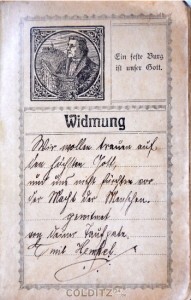 Ein feste Burg
ist unser Gott.
Widmung
Wir wollen trauen auf
den höchsten Gott,
und uns nicht fürchten vor
der Macht der Menschen.
gewidmet
von deiner Taufpate
COLDITZ